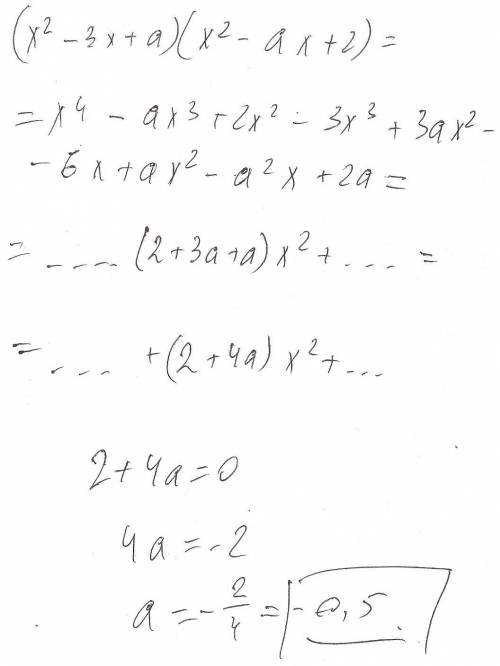 (x² - 3x + a)(x² - ax + 2) =
= x⁴ - ax³ + 2x² - 3x³ + 3ax² -
- 6x + ax² - a²x + 2a =
= .... (2 + 3a + a) x² + ... =
= ... + (2 + 4a) x² + ...
2 + 4a = 0
4a = -2
a = -2/4 = -0,5.